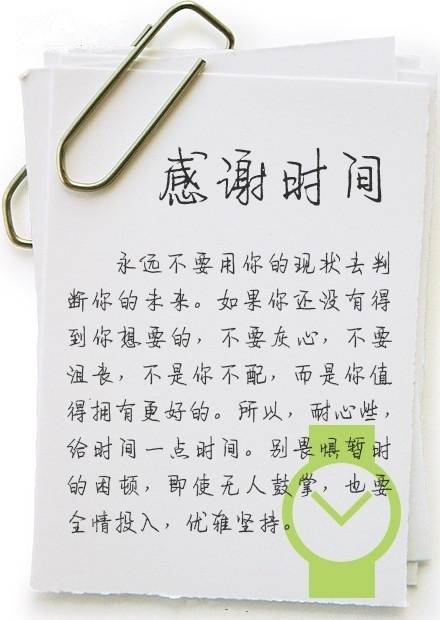 感谢时间
永远不要用你的现状去判
断你的未来。如果你还没有得
到你想要的，不要灰心，不要
沮丧，不是你不配，而是你值
得拥有更好的。所以，耐心些，
给时间一点时间。别畏惧暂时
的困顿，即使无人鼓掌，也要
全情投入，优雅坚持。